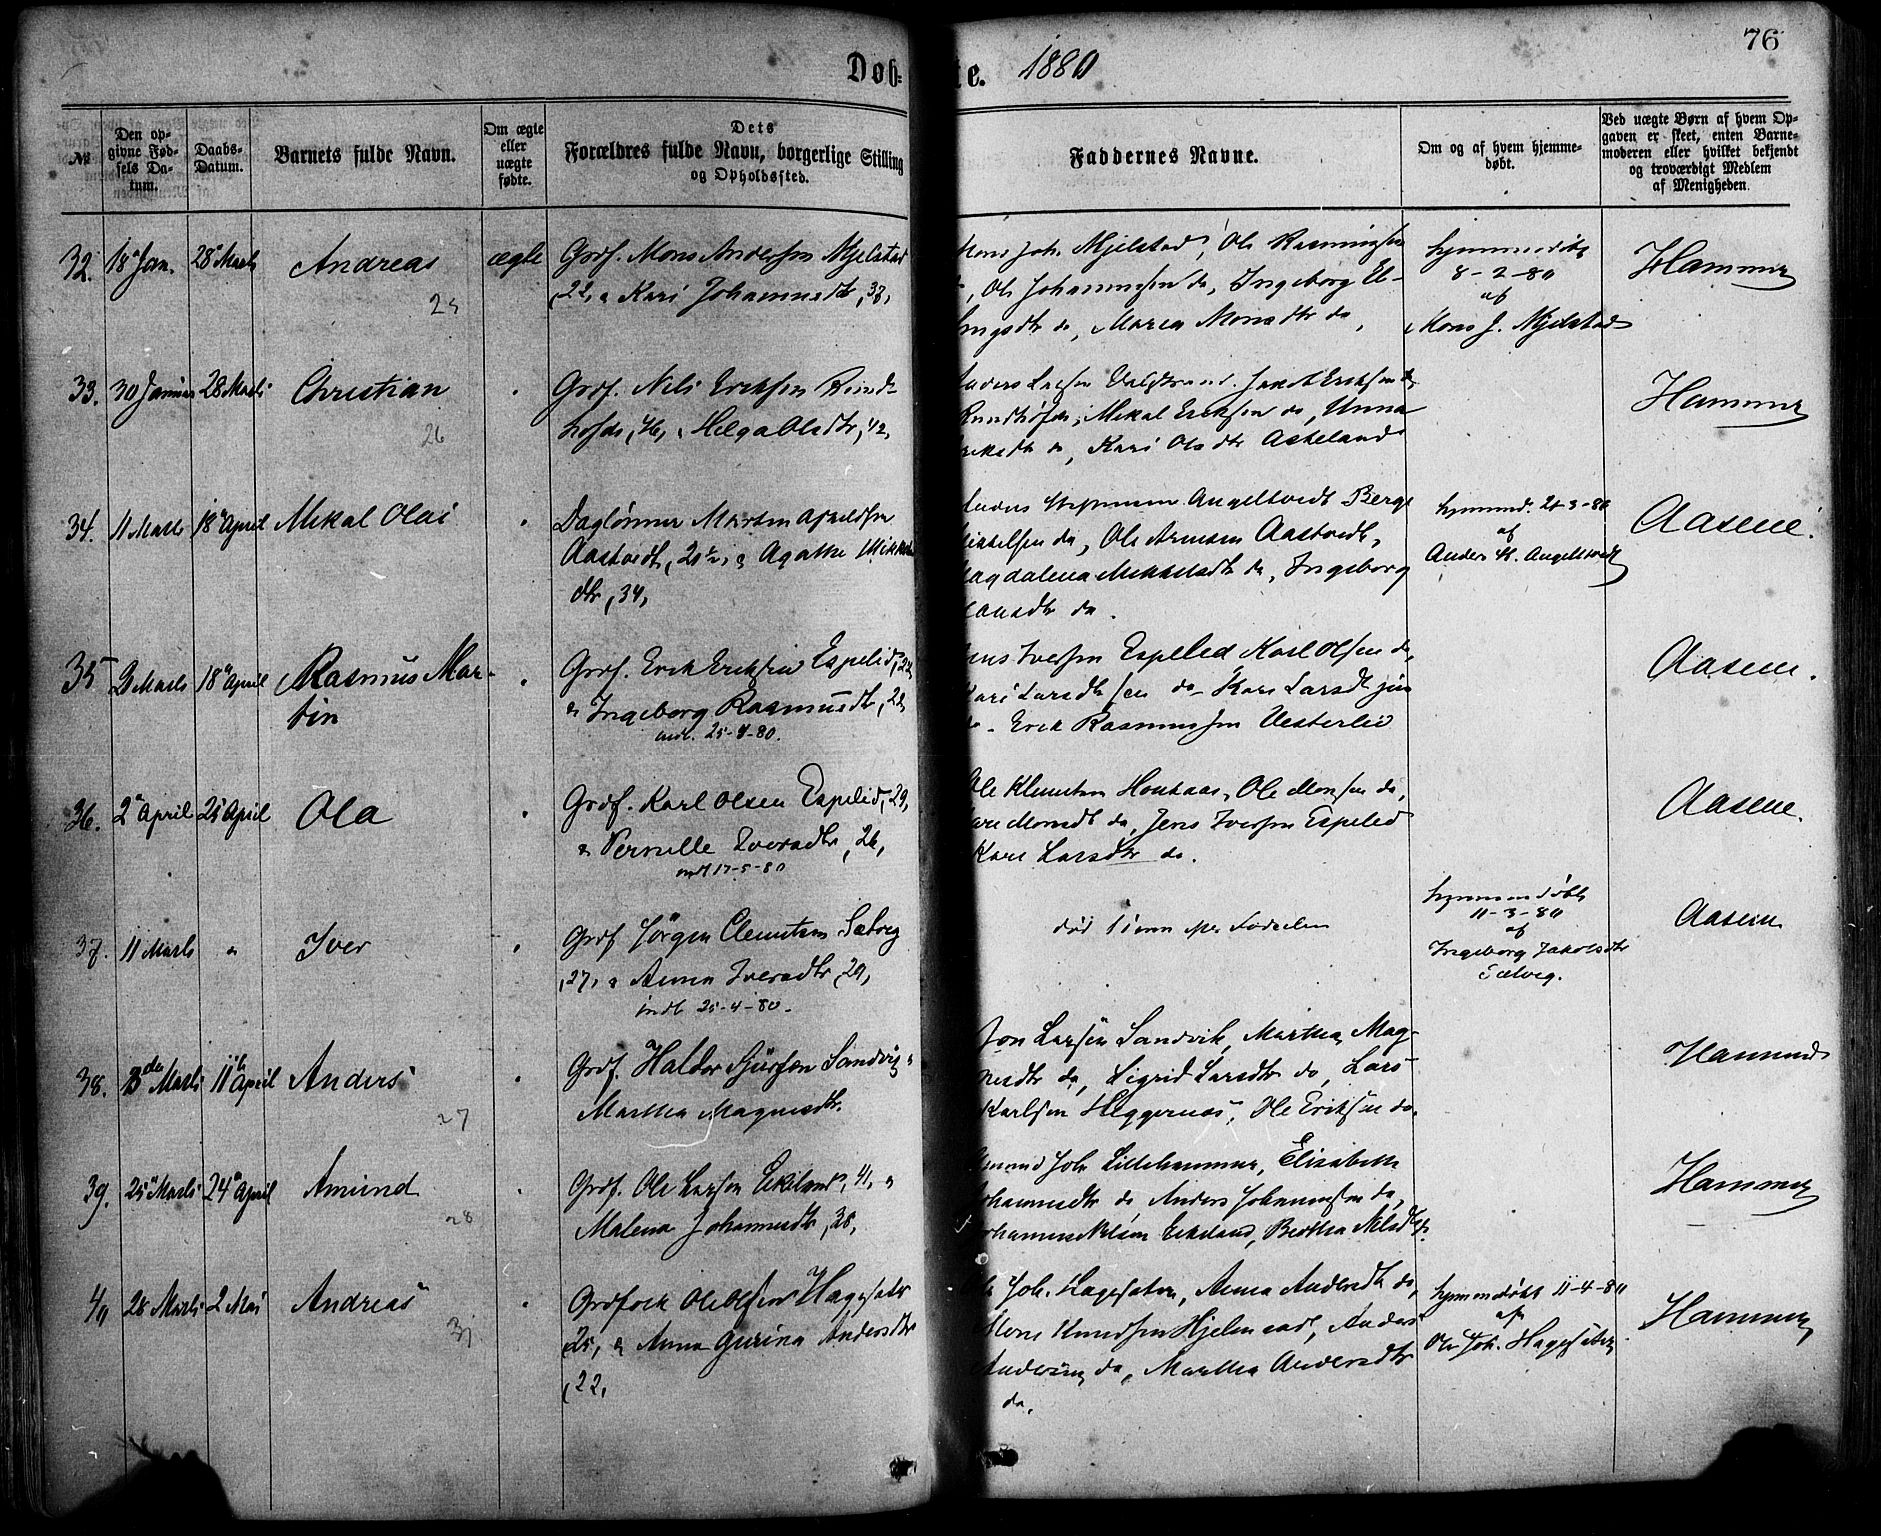 Døb-
te. 1880
76
№
Den op-
givne Fød-
sels Da-
tum.
Daabs-
Datum.
Barnets fulde Navn.
Om ægte
eller
uægte
fødte.
Dets
Forældres fulde Navn, borgerlige Stilling
og Opholdssted.
Faddernes Navne.
Om og af hvem hjemme-
døbt.
Ved uægte Børn af hvem Op-
gaven er skeet, enten Barne-
moderen eller hvilket bekjendt
og troværdigt Medlem
af Menigheden.
32. 18 Jan. 28 Marts Andreas ægte
Grdf. Mons Andersen Mjelstad
22, & Kari Johannesdtr, 38,
25
Mons Joh. Mjelstad, Ole Rasmussen
, Ole Johannessen do, Ingeborg El-
lingsdtr do, Maria Monsdtr do,
hjemmedøbt
8-2-80
af
Mons J. Mjelstad
Hammer
33. 30 Januar 28 Marts Christian "
Grdf. Nils Eriksen Rund-
hofde, 46, & Helga Olsdtr, 42,
26
Anders Larsen Jakob Eriksen
Rundhofde, Mikal Eriksen do, Unna
do, Kari Olsdtr Askeland
Hammer
34. 11 Marts 18 April Mikal Olai "
Daglønner Morten
Aastvedt, & Agathe Mikkels
dtr, 34,
Angeltvedt Berge
Mikkelsen do, Ole Aastvedt,
Magdalena Mikkelsdtr do, Ingeborg
Hansdtr do.
af
Anders H. Angeltvedt
Aasene
35 3 Marts 18 April Rasmus Mar-
tin "
Grdf. Erik Eriksen Espelid, 22,
& Ingeborg Rasmusdtr, 22,
indl. 25-4-80.
Jens Iversen Espelid, Karl Olsen do,
Kari Larsdtr sen do, Kari Larsdtr jun
do. Erik Rasmussen Vesterlid
Aasene.
36. 2 April 25 April Ola "
Grdf. Karl Olsen Espelid, 29,
& Pernille Iversdtr, 26,
indl 17-5-80
Ole Klemetsen Ole Monsen do,
Monsdtr do, Jens Iversen Espelid
Kari Larsdtr do.
Aasene.
37. 11 Marts " Iver "
Grdf Jörgen Clemetsen Sætveg
,27, & Anna Iversdtr, 29,
indl 25-4-80.
død Fødselen
hjemmedøbt
11-3-80
af
Ingeborg Jakobsdtr
Sælveg.
Aasene
38. 3die Marts 11te April Anders "
Grdf Haldor Sjursen Sandvig &
Martha Magnesdtr.
27
Jon Larsen Sandvik, Martha Mag-
nesdtr do, Sigrid Larsdtr do, Lars
Karlsen Heggernæs, Ole Eriksen do.
Hammer
39. 25 Marts 24 April Amund "
Grdf. Ole Larsen Eikeland, 41, &
Malena Johannesdtr, 38,
28
Amund Joh. Lillehammer, Elisabeth
Johannesdtr do, Anders Johannessen do,
Johannes Nilsen Eikeland, Bertha Nilsdtr do.
Hammer
40 28 Marts 2 Mai Andreas "
Grdfolk Ole Olsen Hagesæter
25, & Anna Gurina Andersdtr
,22,
Ole Joh. Hagesæter, Anna Andersdtr do,
Mons Knudsen Anders
Andersen do, Martha Andersdtr
do.
hjemmedøbt 11-4-80
af
Ole Joh. Hagesæter
Hammer